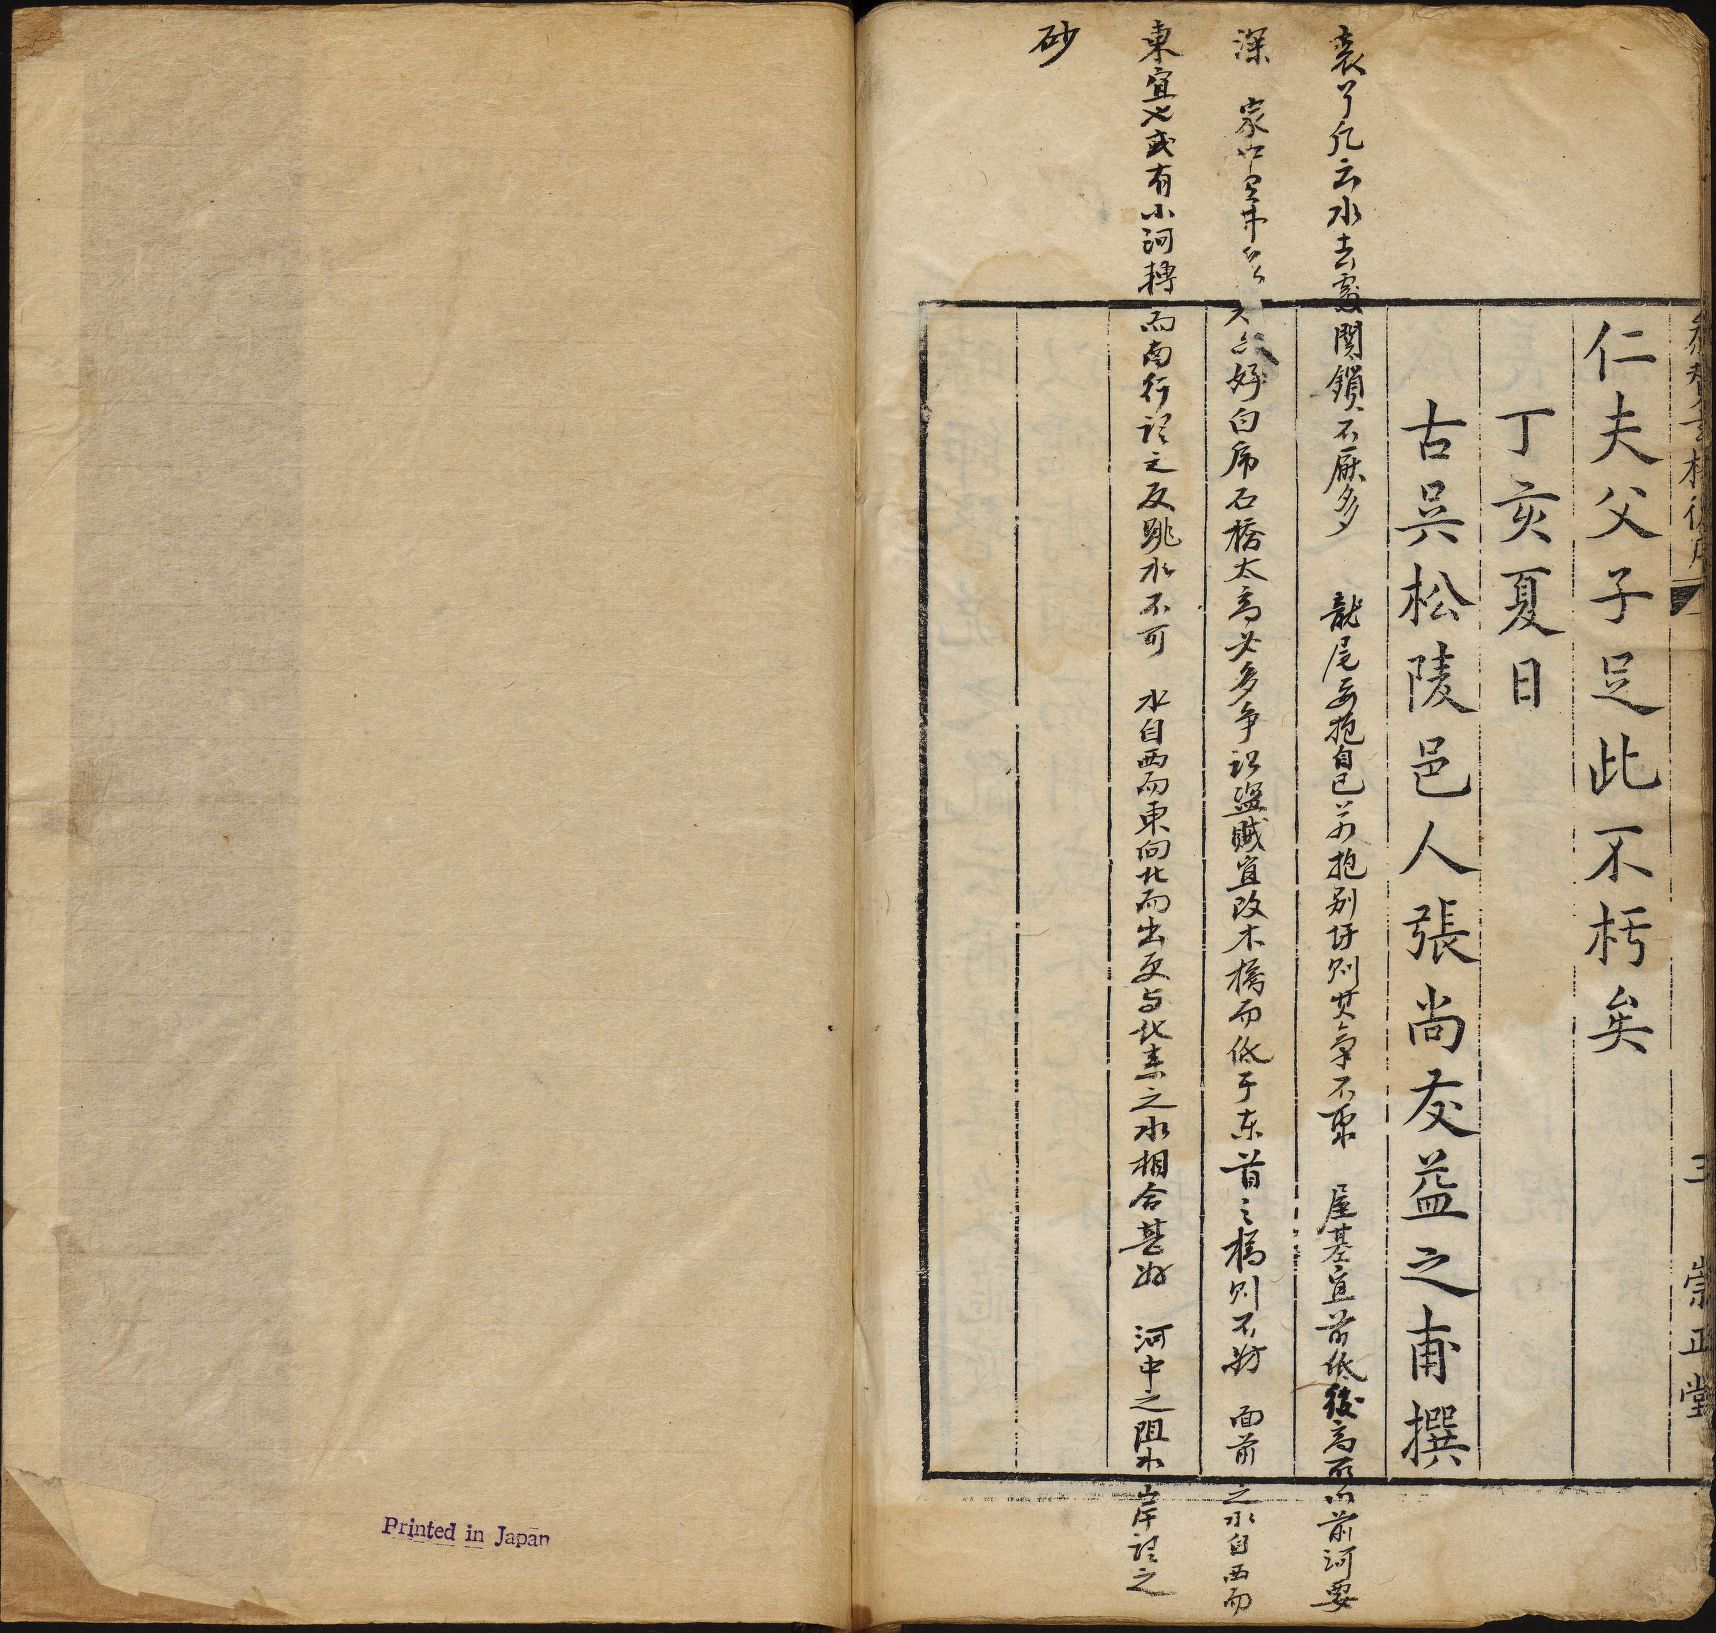 仁夫父子足此不朽矣
丁亥夏日
古吳松陵邑人張尚友益之甫撰
凡云水去處関鎖不厭多 龍尾要抱自己若抱别圩則其氣不聚 屋基宜前低後高所以前河要
深 家中 井 好白虎石橋太高必多争訟盗贼宜改木橋而低于东首之橋則不妨 面前之水自西而
東宜也或有小河轉而南行謂之反跳水不可 水自西而東向北而出更与北来之水相合甚好 河中之阻水岸謂之
砂
三 崇正堂
Printed in Japan